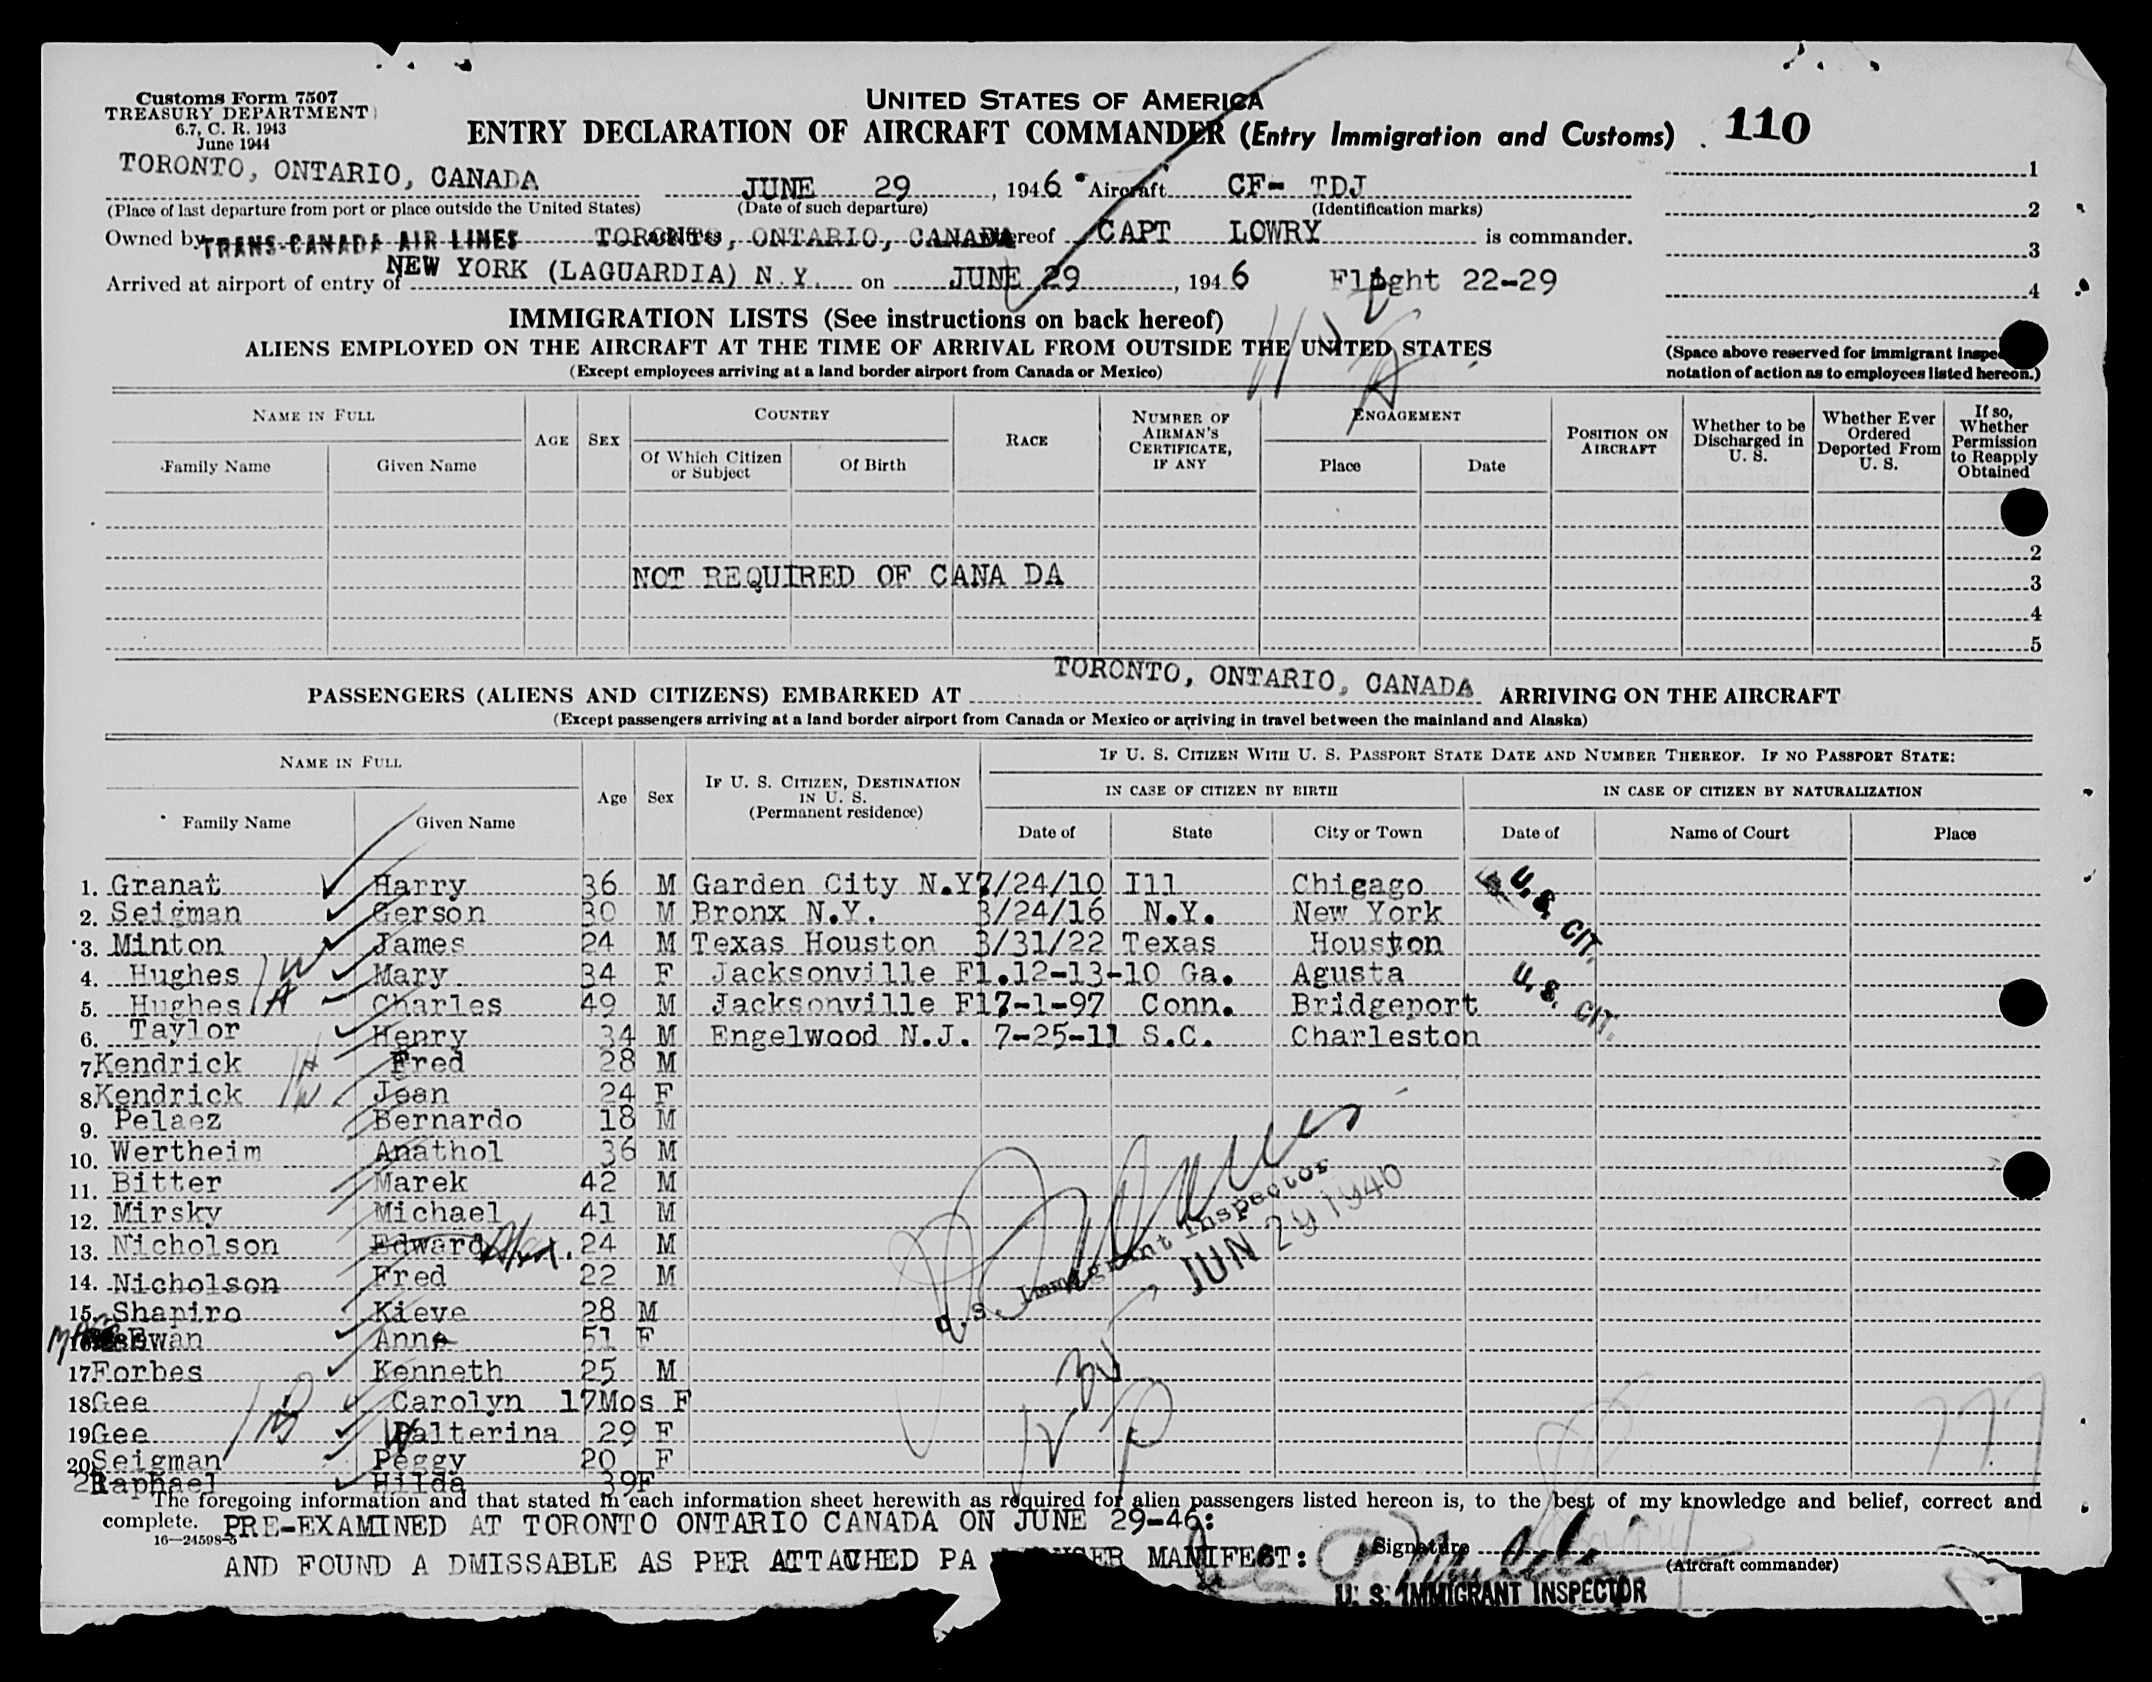 Customs Form 7507
TREASURY DEPARTMENT
6.7, C. R. 1943
June 1944
UNITED STATES OF AMERICA
ENTRY DECLARATION OF AIRCRAFT COMMANDER (Entry Immigration and Customs)
110
TORONTO, ONTARIO, CANADA JUNE 29, 1946 Aircraft CF- TDJ
(Place of last departure from port or place outside the United States) (Date of such departure) (Identification marks)
Owned by TRANS-CANADA AIR LINES TORONTO, ONTARIO, CANADA whereof CAPT LOWRY is commander.
Arrived at airport of entry of NEW YORK (LAGUARDIA) N.Y. on JUNE 29, 1946 Flight 22-29
1
2
3
4
(Space above reserved for immigrant
notation of action as to employees listed hereon.)
IMMIGRATION LISTS (See instructions on back hereof)
ALIENS EMPLOYED ON THE AIRCRAFT AT THE TIME OF ARRIVAL FROM OUTSIDE THE UNITED STATES
(Except employees arriving at a land border airport from Canada or Mexico)
NAME IN FULL
Family Name Given Name
AGE SEX
COUNTRY
Of Which Citizen or Subject
Of Birth
RACE
NUMBER OF AIRMAN'S CERTIFICATE, IF ANY
ENGAGEMENT
Place Date
POSITION ON AIRCRAFT
Whether to be Discharged in U. S.
Whether Ever Ordered Deported From U. S.
If so, Whether Permission to Reapply Obtained
2
NOT REQUIRED OF CANA DA 3
4
5
PASSENGERS (ALIENS AND CITIZENS) EMBARKED AT TORONTO, ONTARIO, CANADA ARRIVING ON THE AIRCRAFT
(Except passengers arriving at a land border airport from Canada or Mexico or arriving in travel between the mainland and Alaska)
NAME IN FULL
Family Name Given Name
Age Sex
IF U. S. CITIZEN, DESTINATION IN U. S. (Permanent residence)
IF U. S. CITIZEN WITH U. S. PASSPORT STATE DATE AND NUMBER THEREOF. IF NO PASSPORT STATE:
IN CASE OF CITIZEN BY BIRTH IN CASE OF CITIZEN BY NATURALIZATION
Date of State City or Town Date of Name of Court Place
1. Granat Harry 36 M Garden City N.Y. 7/24/10 Ill Chicago U.S. CIT.
2. Seigman Gerson 30 M Bronx N.Y. 3/24/16 N.Y. New York
3. Minton James 24 M Texas Houston 3/31/22 Texas Houston
4. Hughes W Mary 34 F Jacksonville Fl. 12-13-10 Ga. Agusta U.S. CIT.
5. Hughes H Charles 49 M Jacksonville Fl 7-1-97 Conn. Bridgeport
6. Taylor Henry 34 M Engelwood N.J. 7-25-11 S.C. Charleston
7. Kendrick H Fred 28 M
8. Kendrick W Jean 24 F
9. Pelaez Bernardo 18 M
10. Wertheim Anathol 36 M
11. Bitter Marek 42 M
12. Mirsky Michael 41 M
13. Nicholson Edward 24 M
14. Nicholson Fred 22 M
15. Shapiro Kieve 28 M
16. Ewan Anne 51 F
17 Forbes Kenneth 25 M
18 Gee Carolyn 17Mos F
19 Gee Walterina 29 F
20 Seigman Peggy 20 F
21 Raphael Hilda 39 F
U.S. Immigrant Inspector
JUN 29 1946
The foregoing information and that stated in each information sheet herewith as required for alien passengers listed hereon is, to the best of my knowledge and belief, correct and
complete. PRE-EXAMINED AT TORONTO ONTARIO CANADA ON JUNE 29-46:
16—24598-5
AND FOUND A DMISSABLE AS PER ATTACHED PA MANIFEST: Signature
(Aircraft commander)
U. S. IMMIGRANT INSPECTOR